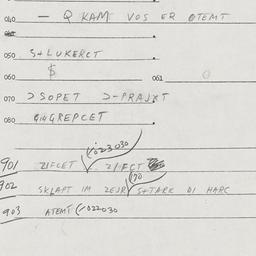 040 — Q KAM VOS ER OTEMT
050 S+LUKERCT
060 $ 061
070 ɔSOPET ɔ-PRAJKT
080 GINGREPCET
901 ZIFCET (✓023030 ZIFCT
902 SKLAFT IM ZEJR S+TARK DI HARC
903 ATEMT (✓022030